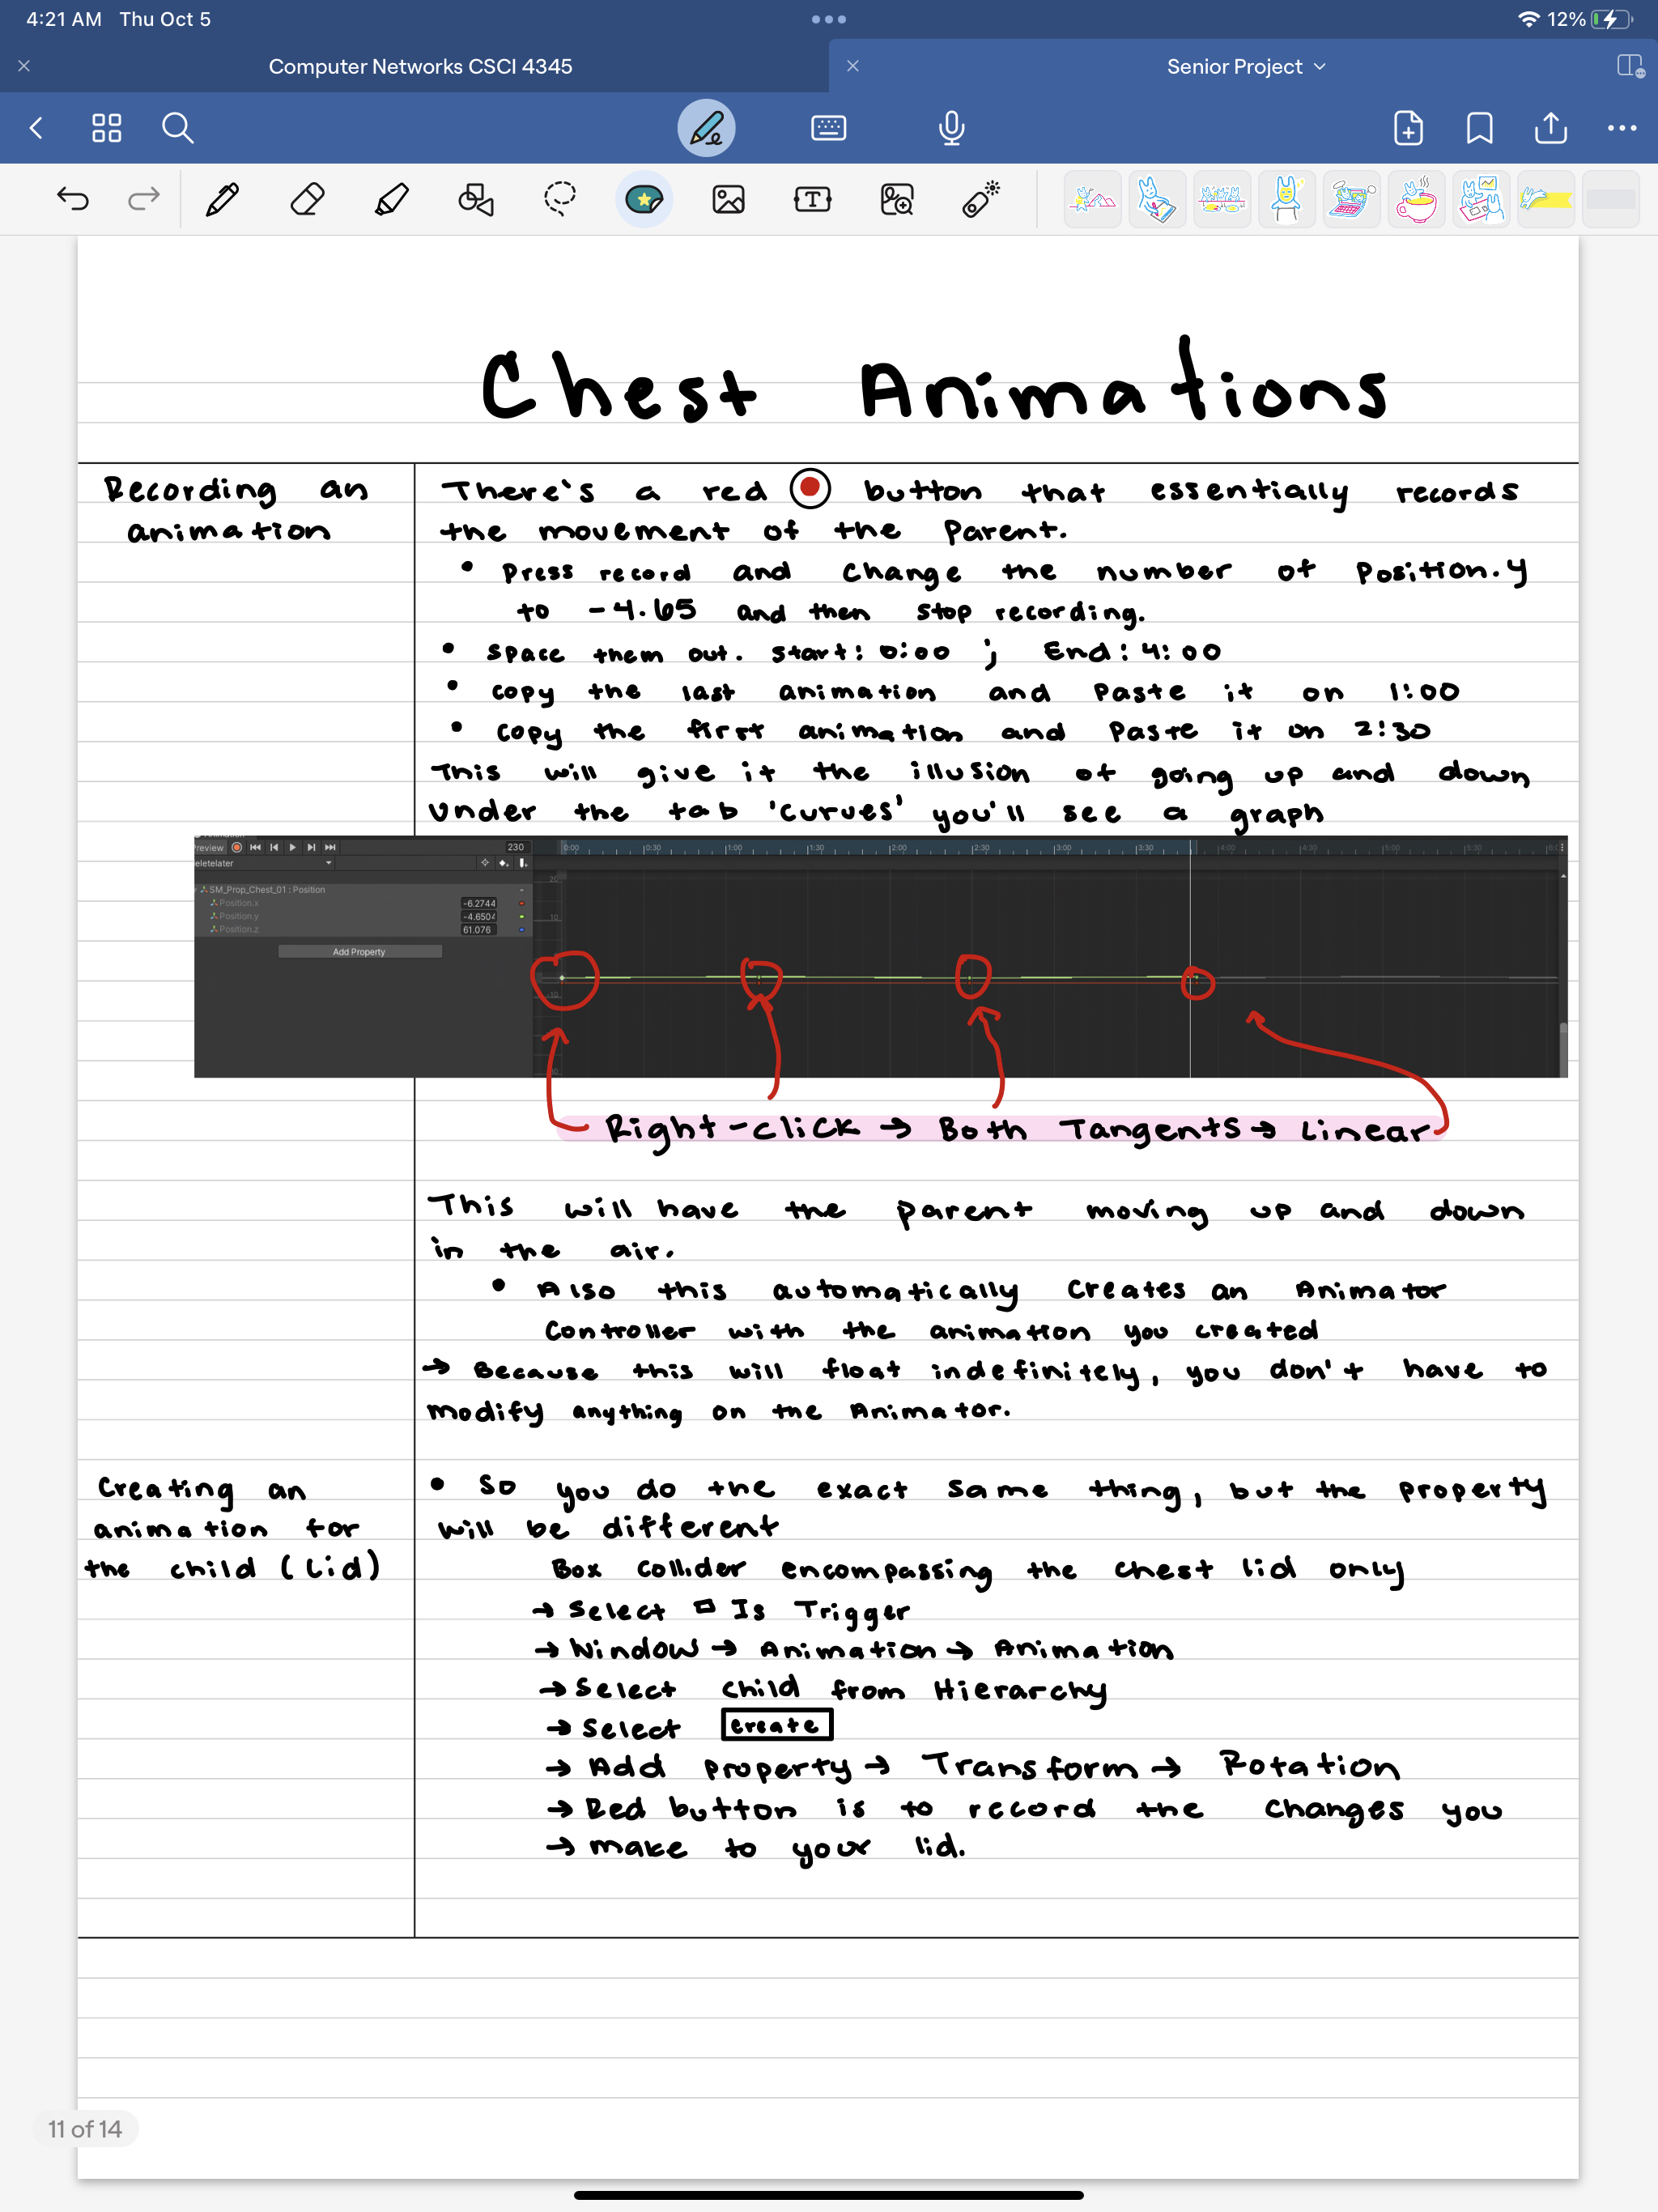 4:21 AM Thu Oct 5
12%
Computer Networks CSCI 4345
Senior Project
Chest Animations
Recording an
animation
There's a red button that essentially records
the movement of the Parent.
• Press record and change the number of Position.y
to -4.65 and then stop recording.
• Space them out. Start: 0:00 ; End: 4:00
• copy the last animation and paste it on 1:00
• copy the first animation and paste it on 2:30
This will give it the illusion of going up and down
Under the tab 'curves' you'll see a graph
Preview 230
eletelater
SM_Prop_Chest_01 : Position
Position.x -6.2744
Position.y -4.6504
Position.z 61.076
Add Property
0:00 0:30 1:00 1:30 2:00 2:30 3:00 3:30 4:00 4:30 5:00 5:30
20
10
-10
Right-click → Both Tangents → Linear
This will have the parent moving up and down
in the air.
• Also this automatically creates an Animator
Controller with the animation you created
→ Because this will float indefinitely, you don't have to
modify anything on the Animator.
Creating an
animation for
the child (Lid)
• So you do the exact same thing, but the property
will be different
Box Collider encompassing the chest lid only
→ Select Is Trigger
→ Window → Animation → Animation
→ Select child from Hierarchy
→ Select Create
→ Add property → Transform → Rotation
→ Red button is to record the changes you
→ make to your lid.
11 of 14